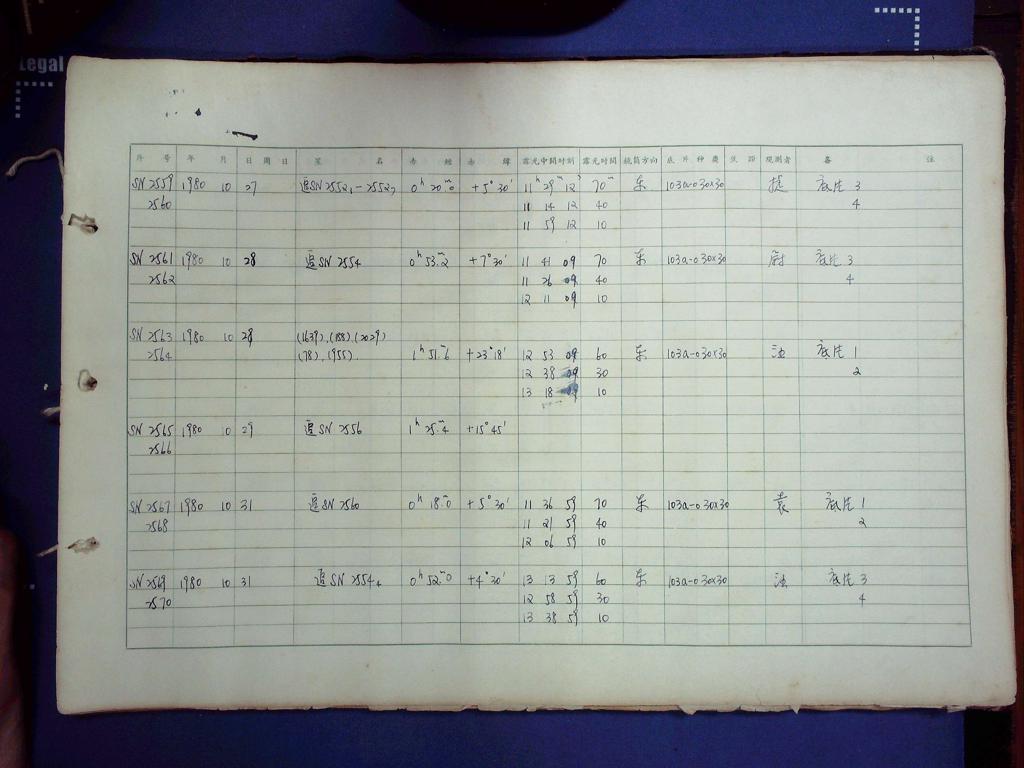 Legal
序 号 年 月 日 周 日 星 名 赤 经 赤 纬 露光中间时刻 露光时间 镜筒方向 底 片 种 类 观测者 备 注
SN 2559 1980 10 27 追SN 2552₁-2552₂ 0ʰ 20ᵐ.0 +5°30′ 11ʰ 29ᵐ 12ˢ 70ᵐ 东 103a-0 30x30 底片 3
2560 11 14 12 40 4
11 59 12 10
SN 2561 1980 10 28 追SN 2554 0ʰ 53ᵐ.2 +7°30′ 11 41 09 70 东 103a-0 30x30 底片 3
2562 11 26 09 40 4
12 11 09 10
SN 2563 1980 10 28 (1639),(188),(2029)
2564 (78),(955) 1ʰ 51ᵐ.6 +23°18′ 12 53 09 60 东 103a-0 30x30 底片 1
12 38 09 30 2
13 18 09 10
SN 2565 1980 10 29 追SN 2556 1ʰ 25ᵐ.4 +15°45′
2566
SN 2567 1980 10 31 追SN 2560 0ʰ 18ᵐ.0 +5°30′ 11 36 59 70 东 103a-0 30x30 袁 底片 1
2568 11 21 59 40 2
12 06 59 10
SN 2569 1980 10 31 追SN 2554₄ 0ʰ 52ᵐ.0 +4°30′ 13 13 59 60 东 103a-0 30x30 底片 3
2570 12 58 59 30 4
13 38 59 10